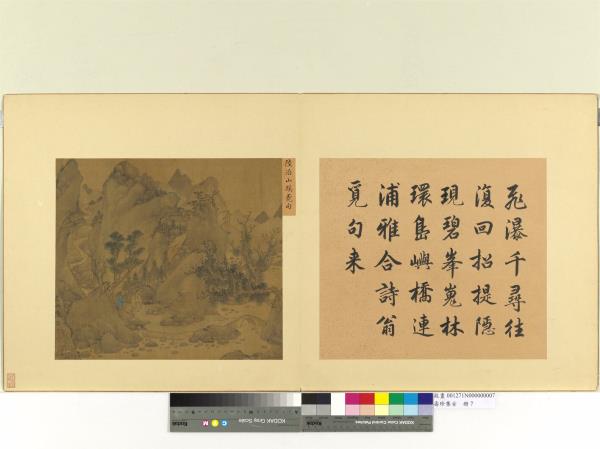 飛瀑千尋往
復回招提隱
現碧峯嵬林
環島嶼橋連
浦雅合詩翁
覓句来
陸治山覓句
故畫 001271N000000007
珍集古 冊 7
Kodak
C Y M
KODAK Gray Scale
Kodak
KODAK Color Control Patches